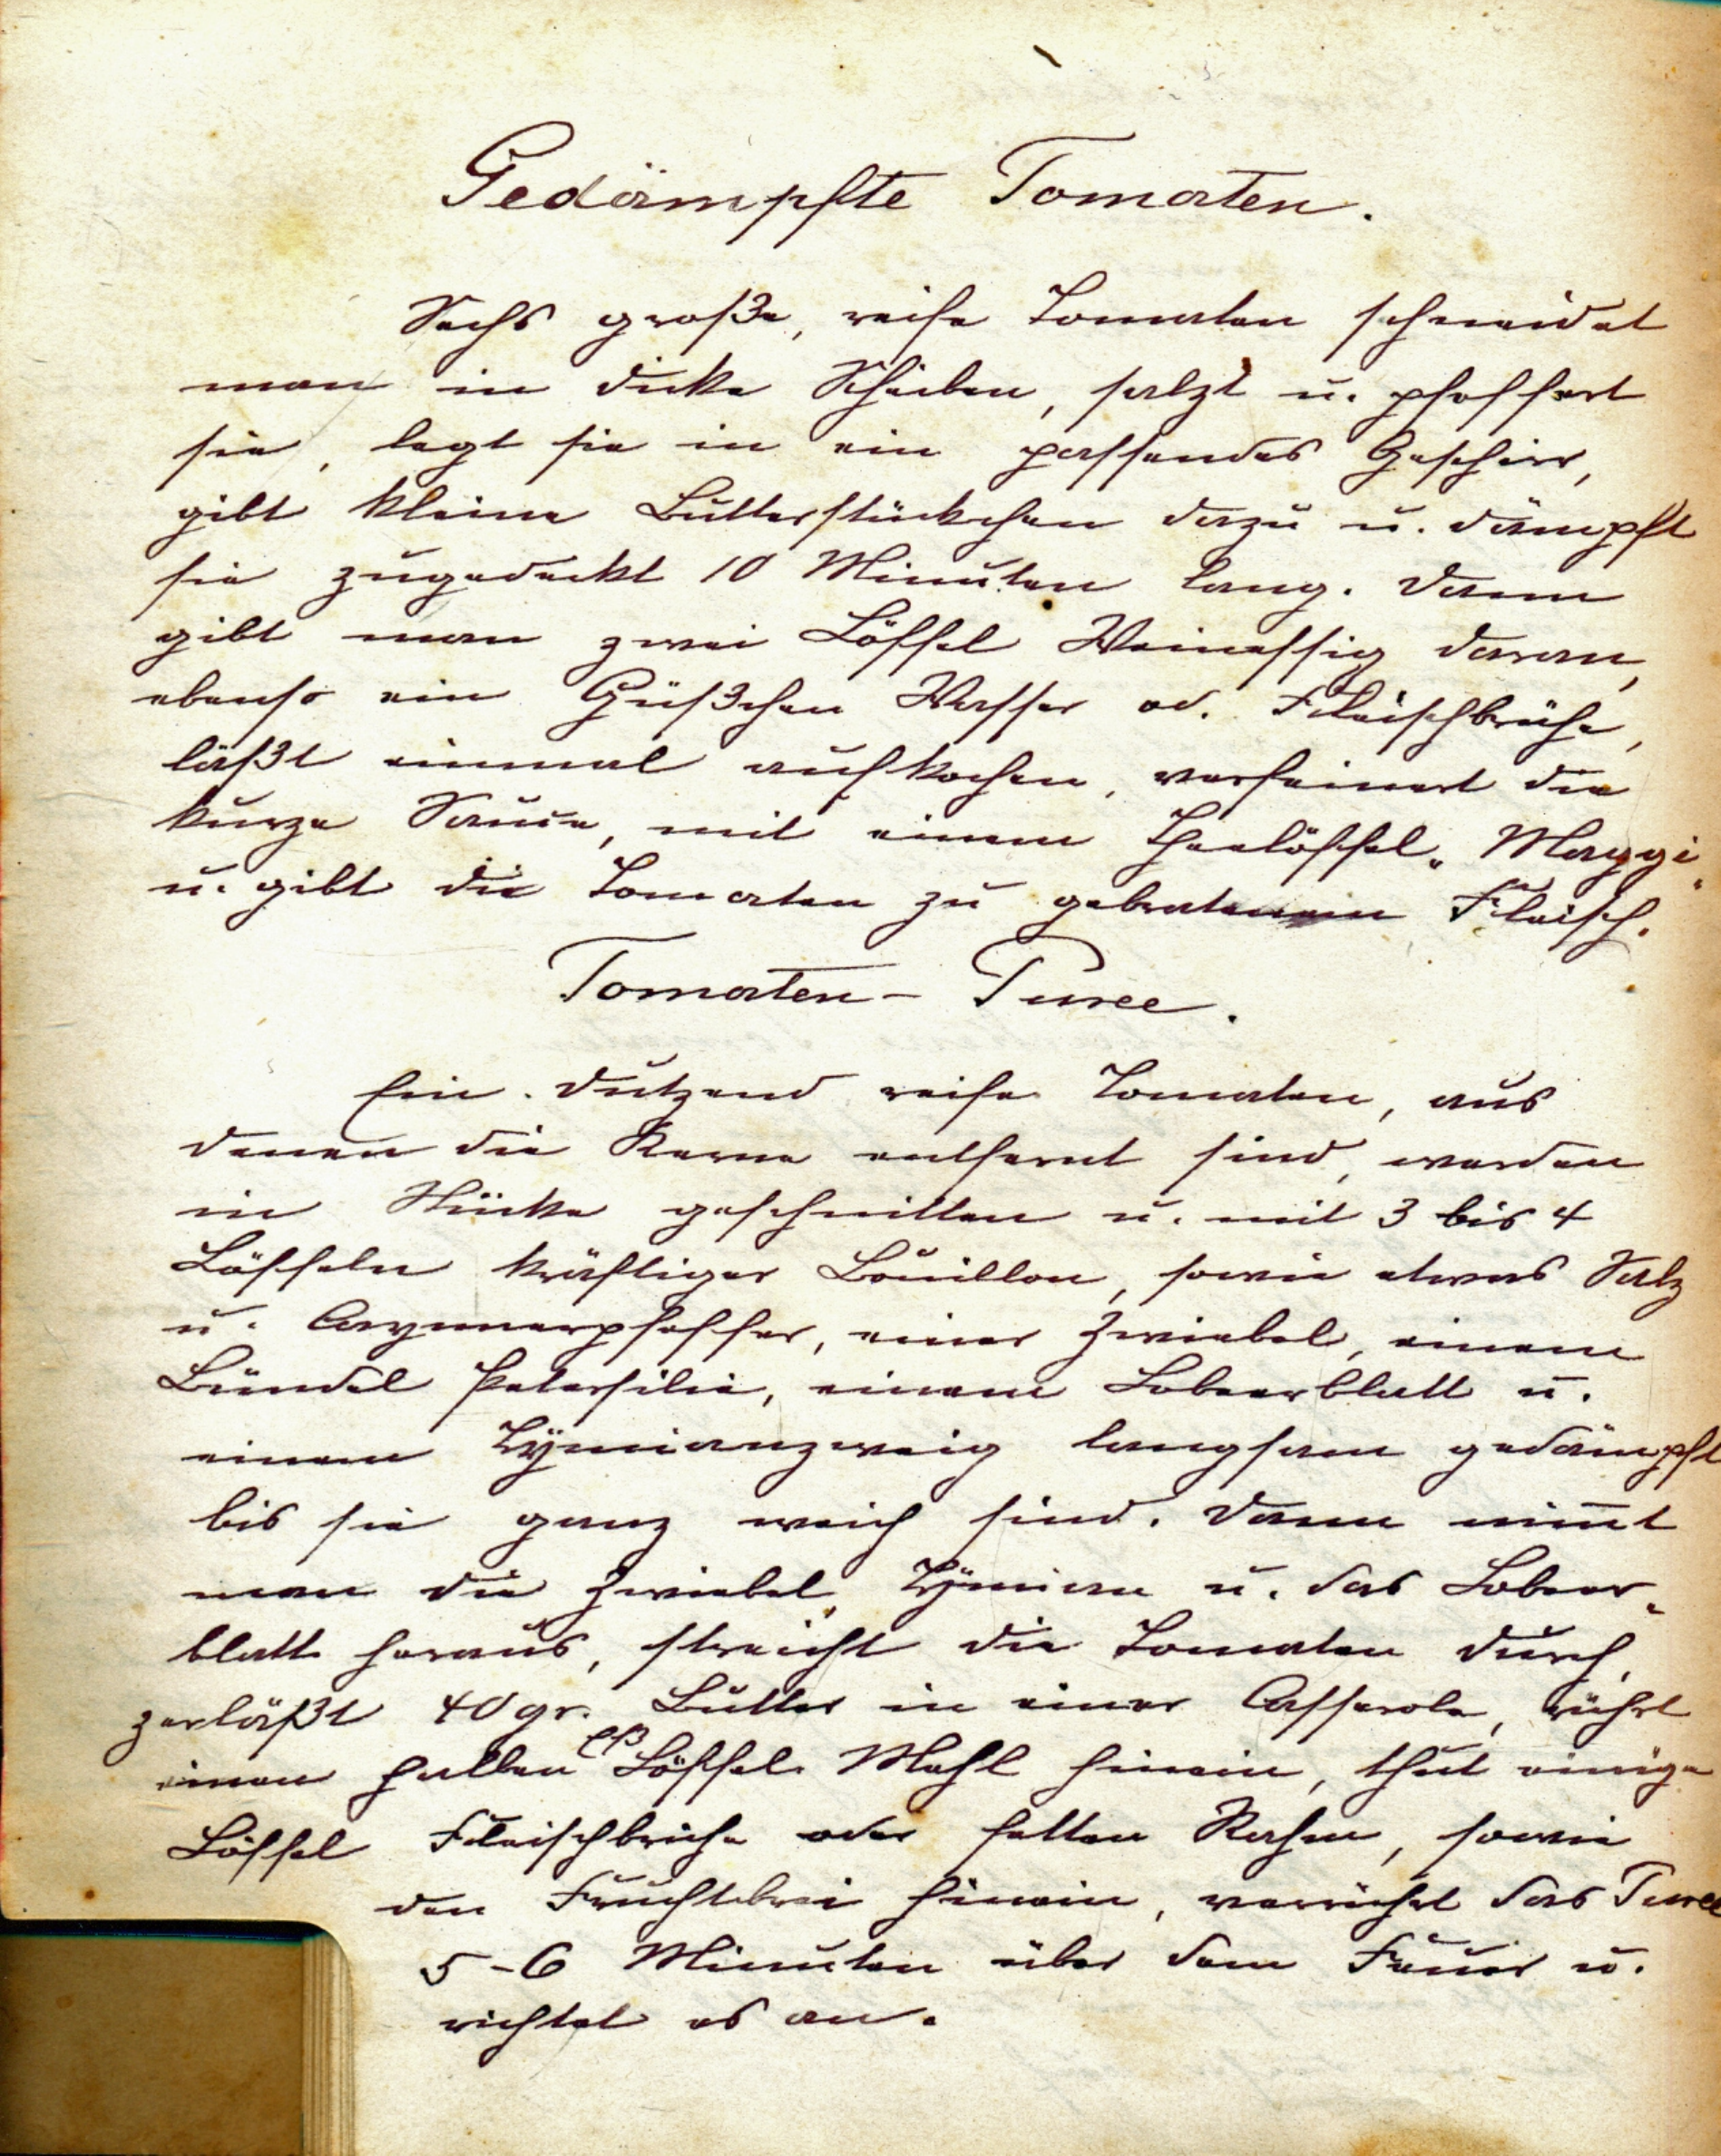 Gedämpfte Tomaten.
Sechs große, reife Tomaten schneidet
man in dicke Scheiben, salzt u. pfeffert
sie, legt sie in ein passendes Geschirr,
gibt kleine Butterstückchen dazu u. dämpft
sie zugedeckt 10 Minuten lang. Dann
gibt man zwei Löffel Weinessig daran,
ebenso ein Güßchen Wasser od. Fleischbrühe,
läßt einmal aufkochen, verfeinert die
kurze Sauce, mit einem Theelöffel „Maggi“
u. gibt die Tomaten zu gebratenem Fleisch.
Tomaten-Puree.
Ein Dutzend reife Tomaten, aus
denen die Kerne entfernt sind, werden
in Stücke geschnitten u. mit 3 bis 4
Löffeln kräftiger Bouillon, sowie etwas Salz
u. Cayennerpfeffer, einer Zwiebel, einem
Bündel Petersilie, einem Lobeerblatt u.
einem Tymianzweig langsam gedämpft
bis sie ganz weich sind. Dann nim̄t
man die Zwiebel, Tymian u. das Lobeer-
blatt heraus, streicht die Tomaten durch,
zerläßt 40 gr. Butter in einer Casserole, rührt
einen halben Eß Löffel Mehl hinein, thut einige
Löffel Fleischbrühe oder fetten Rahm, sowie
den Fruchtbrei hinein, verrührt das Puree
5-6 Minuten über dem Feuer u.
richtet es an.